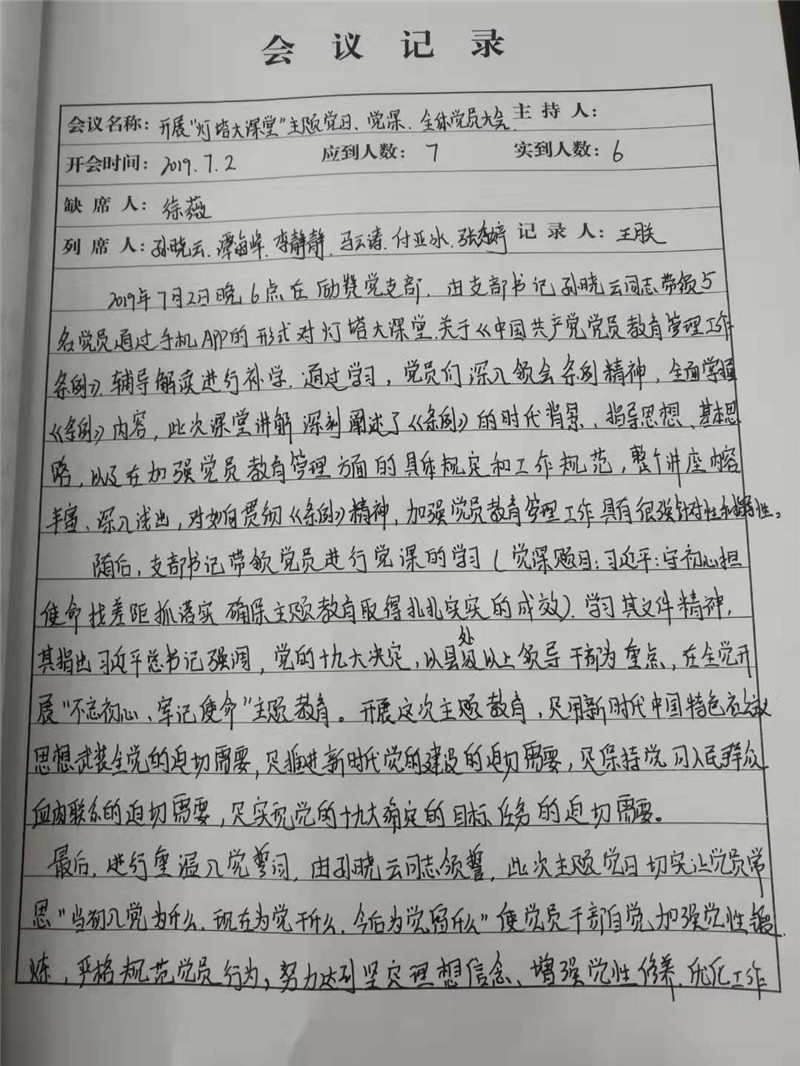 会议记录
会议名称：开展"灯塔大课堂"主题党日、党课、全体党员大会 主持人：
开会时间：2019.7.2 应到人数：7 实到人数：6
缺席人：徐薇
列席人：孙晓云、谭海峰、李静静、马云涛、付亚冰、张婷 记录人：王朕
2019年7月2日晚6点在励赞党支部，由支部书记孙晓云同志带领5
名党员通过手机APP的形式对灯塔大课堂关于《中国共产党党员教育管理工作
条例》辅导解读进行补学。通过学习，党员们深入领会条例精神，全面掌握
《条例》内容，此次课堂讲解深刻阐述了《条例》的时代背景、指导思想、基本思
路，以及在加强党员教育管理方面的具体规定和工作规范，整个讲座内容
丰富、深入浅出，对如何贯彻《条例》精神，加强党员教育管理工作具有很强针对性和指导性。
随后，支部书记带领党员进行党课的学习（党课题目：习近平：守初心担
使命找差距抓落实 确保主题教育取得扎扎实实的成效）。学习其文件精神，
其指出习近平总书记强调，党的十九大决定，以县处级以上领导干部为重点，在全党开
展"不忘初心、牢记使命"主题教育。开展这次主题教育，是用新时代中国特色社会主义
思想武装全党的迫切需要，是推进新时代党的建设的迫切需要，是保持党同人民群众
血肉联系的迫切需要，是实现党的十九大确定的目标任务的迫切需要。
最后，进行重温入党誓词，由孙晓云同志领誓，此次主题党日切实让党员常
思"当初入党为什么、现在为党干什么、今后为党留什么"使党员干部自觉加强党性锻
炼，严格规范党员行为，努力达到坚定理想信念、增强党性修养、优化工作